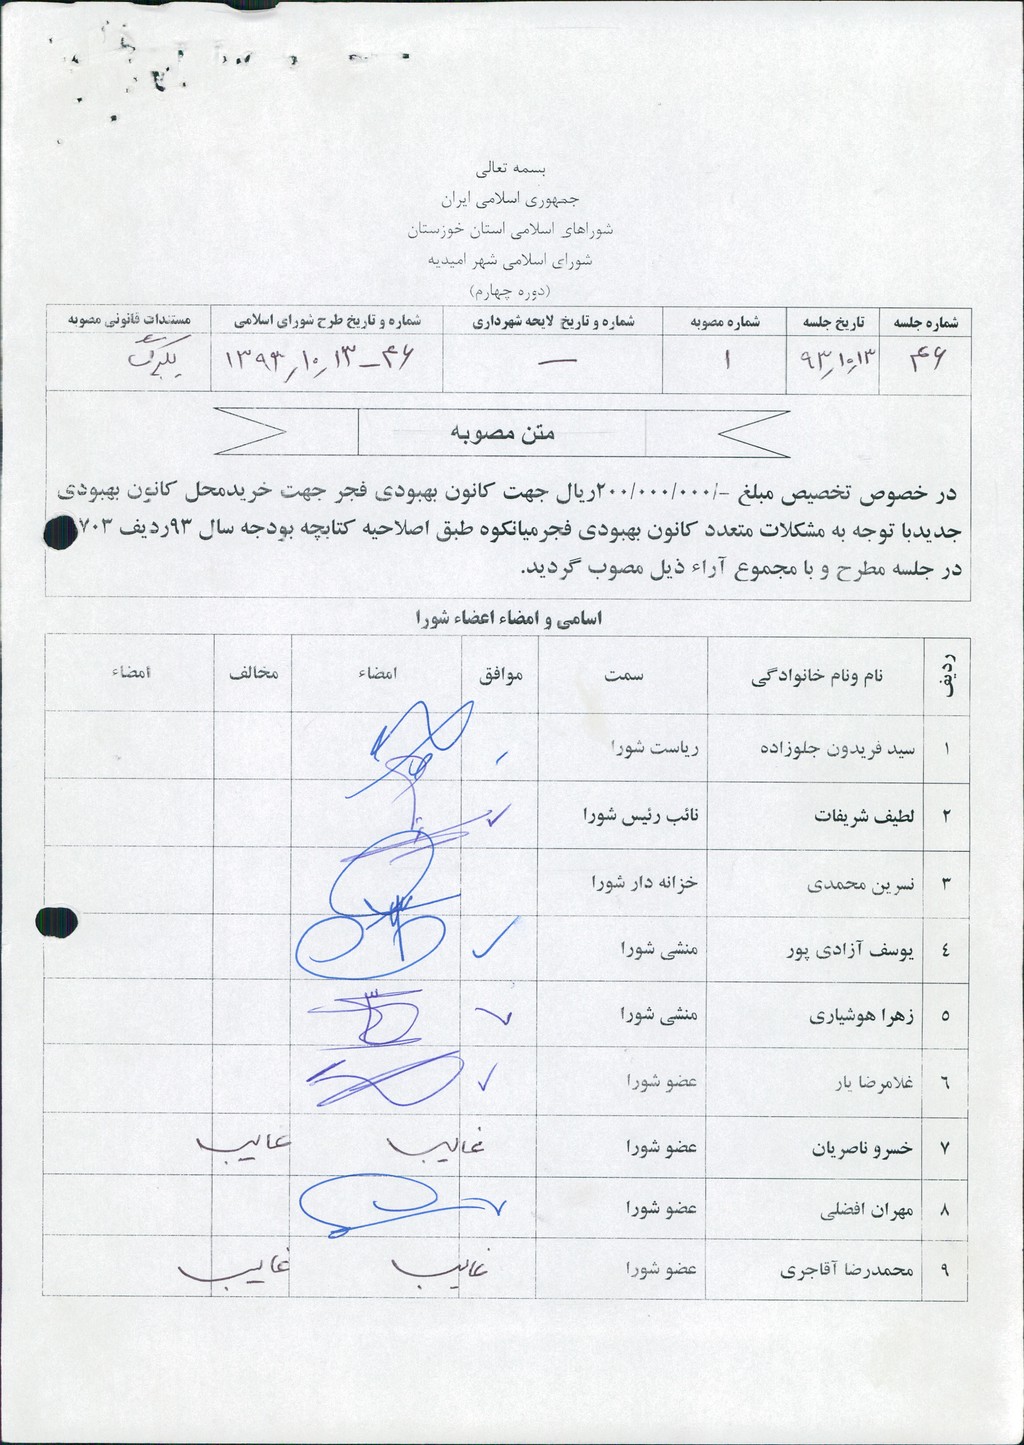 بسمه تعالی
جمهوری اسلامی ایران
شوراهای اسلامی استان خوزستان
شورای اسلامی شهر امیدیه
(دوره چهارم)
شماره جلسه تاریخ جلسه شماره مصوبه شماره و تاریخ لایحه شهرداری شماره و تاریخ طرح شورای اسلامی مستندات قانونی مصوبه
۴۶ ۹۳٫۱۰٫۱۳ ۱ — ۴۶ـ ۱۳٫۱۰٫۱۳۹۳
متن مصوبه
در خصوص تخصیص مبلغ -/۲۰۰/۰۰۰/۰۰۰ریال جهت کانون بهبودی فجر جهت خریدمحل کانون بهبودی
جدیدبا توجه به مشکلات متعدد کانون بهبودی فجرمیانکوه طبق اصلاحیه کتابچه بودجه سال ۹۳ردیف ۷۰۳
در جلسه مطرح و با مجموع آراء ذیل مصوب گردید.
اسامی و امضاء اعضاء شورا
ردیف نام ونام خانوادگی سمت موافق امضاء مخالف امضاء
۱ سید فریدون جلوزاده ریاست شورا
۲ لطیف شریفات نائب رئیس شورا ✓
۳ نسرین محمدی خزانه دار شورا
٤ یوسف آزادی پور منشی شورا ✓
٥ زهرا هوشیاری منشی شورا ✓
٦ غلامرضا یار عضو شورا ✓
۷ خسرو ناصریان عضو شورا غایب غایب
۸ مهران افضلی عضو شورا ✓
۹ محمدرضا آقاجری عضو شورا غایب غایب